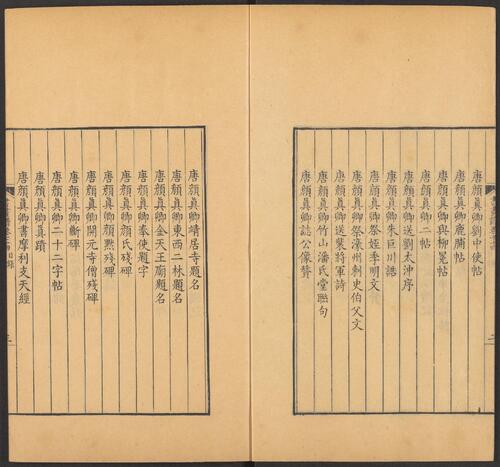 唐顏真卿劉中使帖
唐顏真卿鹿脯帖
唐顏真卿與柳冕帖
唐顏真卿二帖
唐顏真卿送劉太沖序
唐顏真卿朱巨川誥
唐顏真卿祭姪季明文
唐顏真卿祭濠州刺史伯父文
唐顏真卿送裴將軍詩
唐顏真卿竹山潘氏堂聯句
唐顏真卿誌公像贊
唐顏真卿靖居寺題名
唐顏真卿東西二林題名
唐顏真卿金天王廟題名
唐顏真卿奉使題字
唐顏真卿顏氏殘碑
唐顏真卿顏默殘碑
唐顏真卿開元寺僧殘碑
唐顏真卿斷碑
唐顏真卿二十二字帖
唐顏真卿真蹟
唐顏真卿書摩利支天經